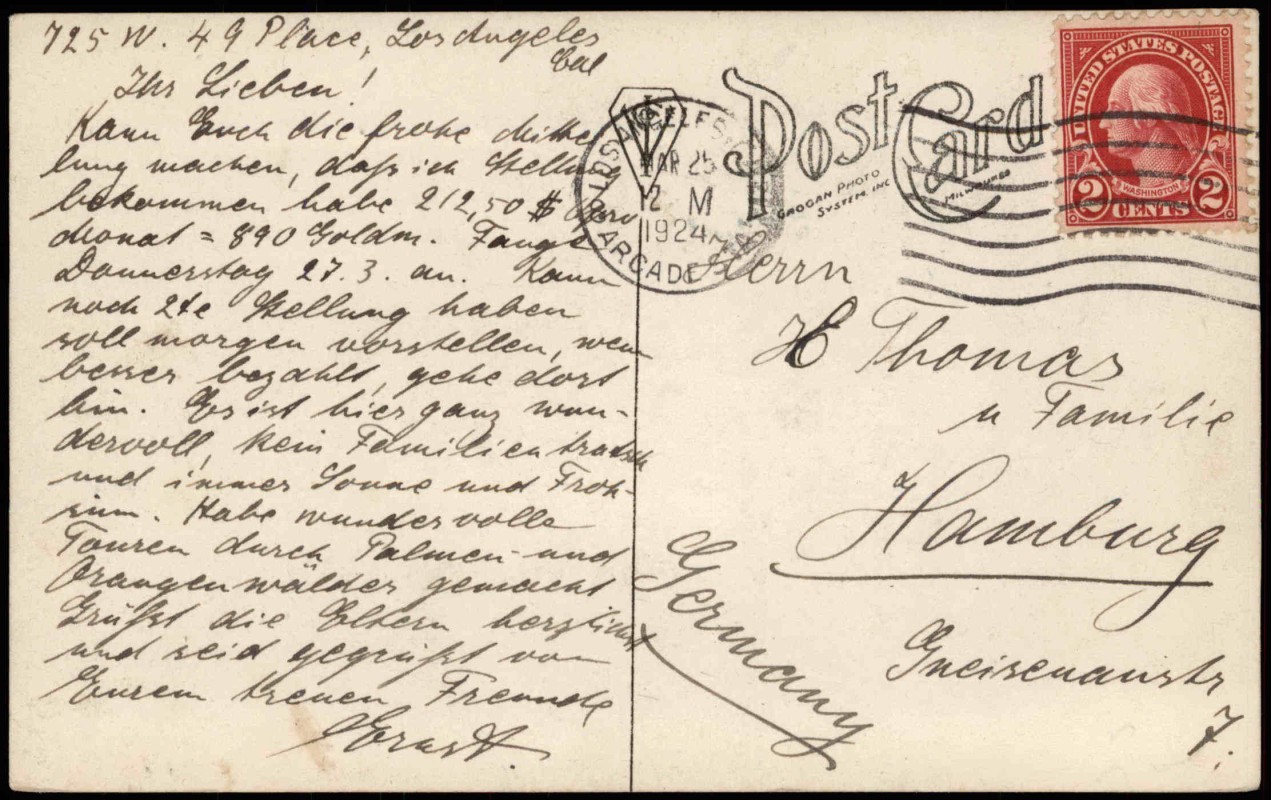 725 W. 49 Place, Los Angeles
Cal
Ihr Lieben!
Kann Euch die frohe Mittei
lung machen, daß ich Stellung
bekommen habe 212,50 $ pro
Monat = 890 Goldm. Fange
Donnerstag 27.3. an. Kann
noch 2te Stellung haben
soll morgen vorstellen, wenn
besser bezahlt, gehe dort
hin. Es ist hier ganz wun-
dervoll, kein Familientratsch
und immer Sonne und Froh-
sinn. Habe wundervolle
Touren durch Palmen- und
Orangenwälder gemacht
Grüßt die Eltern herzlichst
und seid gegrüßt von
Eurem treuen Freunde
Ernst.
Post Card
GROGAN PHOTO
SYSTEM, INC
MILWAUKEE
LOS ANGELES
MAR 25
12 M
1924
ARCADE STA
UNITED STATES POSTAGE
WASHINGTON
2 CENTS 2
Herrn
H Thomas
u Familie
Hamburg
Germany
Gneisenaustr
7.